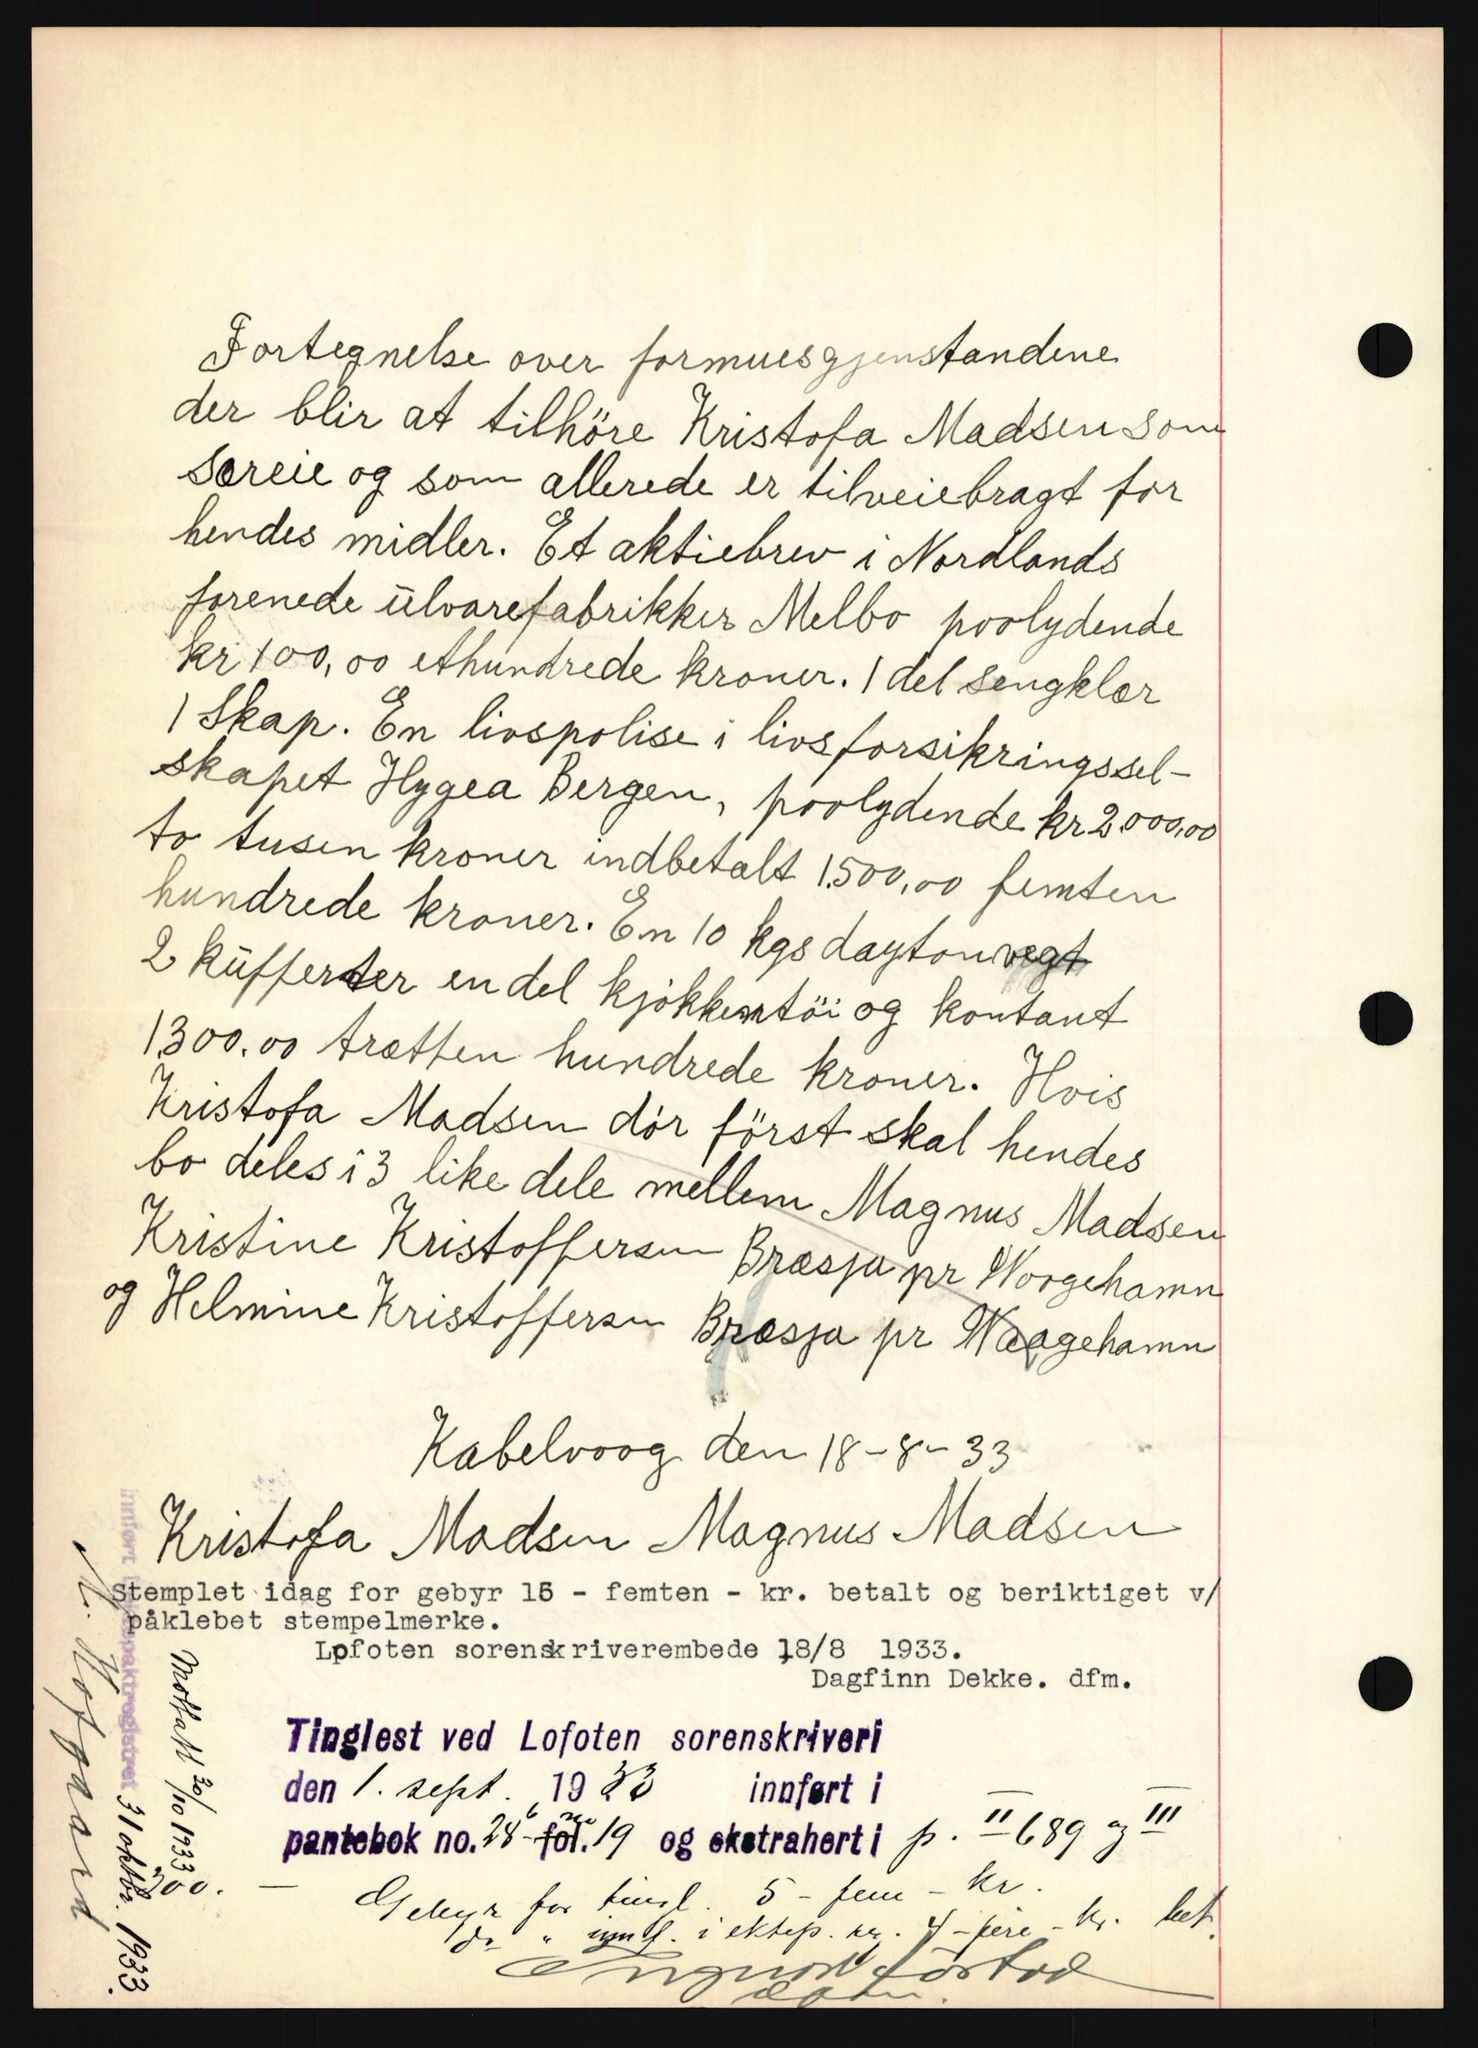 Fortegnelse over formuesgjenstandene
der blir at tilhöre Kristofa Madsen som
særeie og som allerede er tilveiebragt for
hendes midler. Et aktiebrev i Nordlands
forenede ülvarefabrikker Melbo paalydende
kr 100,00 ethundrede kroner. 1 del sengklær
1 Skap. En livspolise i livsforsikringssel-
skapet Hygea Bergen, paalydende kr 2000,00
to tusen kroner indbetalt 1.500,00 femten
hundrede kroner. En 10 kgs daytonvegt
2 küfferter en del kjøkkentöi og kontant
1.300.00 trætten hundrede kroner. Hvis
Kristofa Madsen dör först skal hendes
bo deles i 3 like dele mellem Magnus Madsen
Kristine Kristoffersen Bræsja pr Worgehamn
og Helmine Kristoffersen Bræsja pr Waagehamn
Kabelvaag den 18-8-33
Kristofa Madsen Magnus Madsen
Stemplet idag for gebyr 15 - femten - kr. betalt og beriktiget v/
påklebet stempelmerke.
Lofoten sorenskriverembede 18/8 1933.
Dagfinn Dekke. dfm.
Tinglest ved Lofoten sorenskriveri
den 1. sept. 1933 innført i
pantebok no. 28 fol. 19 og ekstrahert i p. II 689 og III
Gebyr for tingl. 5 - fem - kr.
do " innf. i ektep. kr. 4 - fire - kr. bet.
Mottatt 20/10 1933
300.
innført i ektepaktregistret 31 oktbr. 1933.
N. Hofgaard